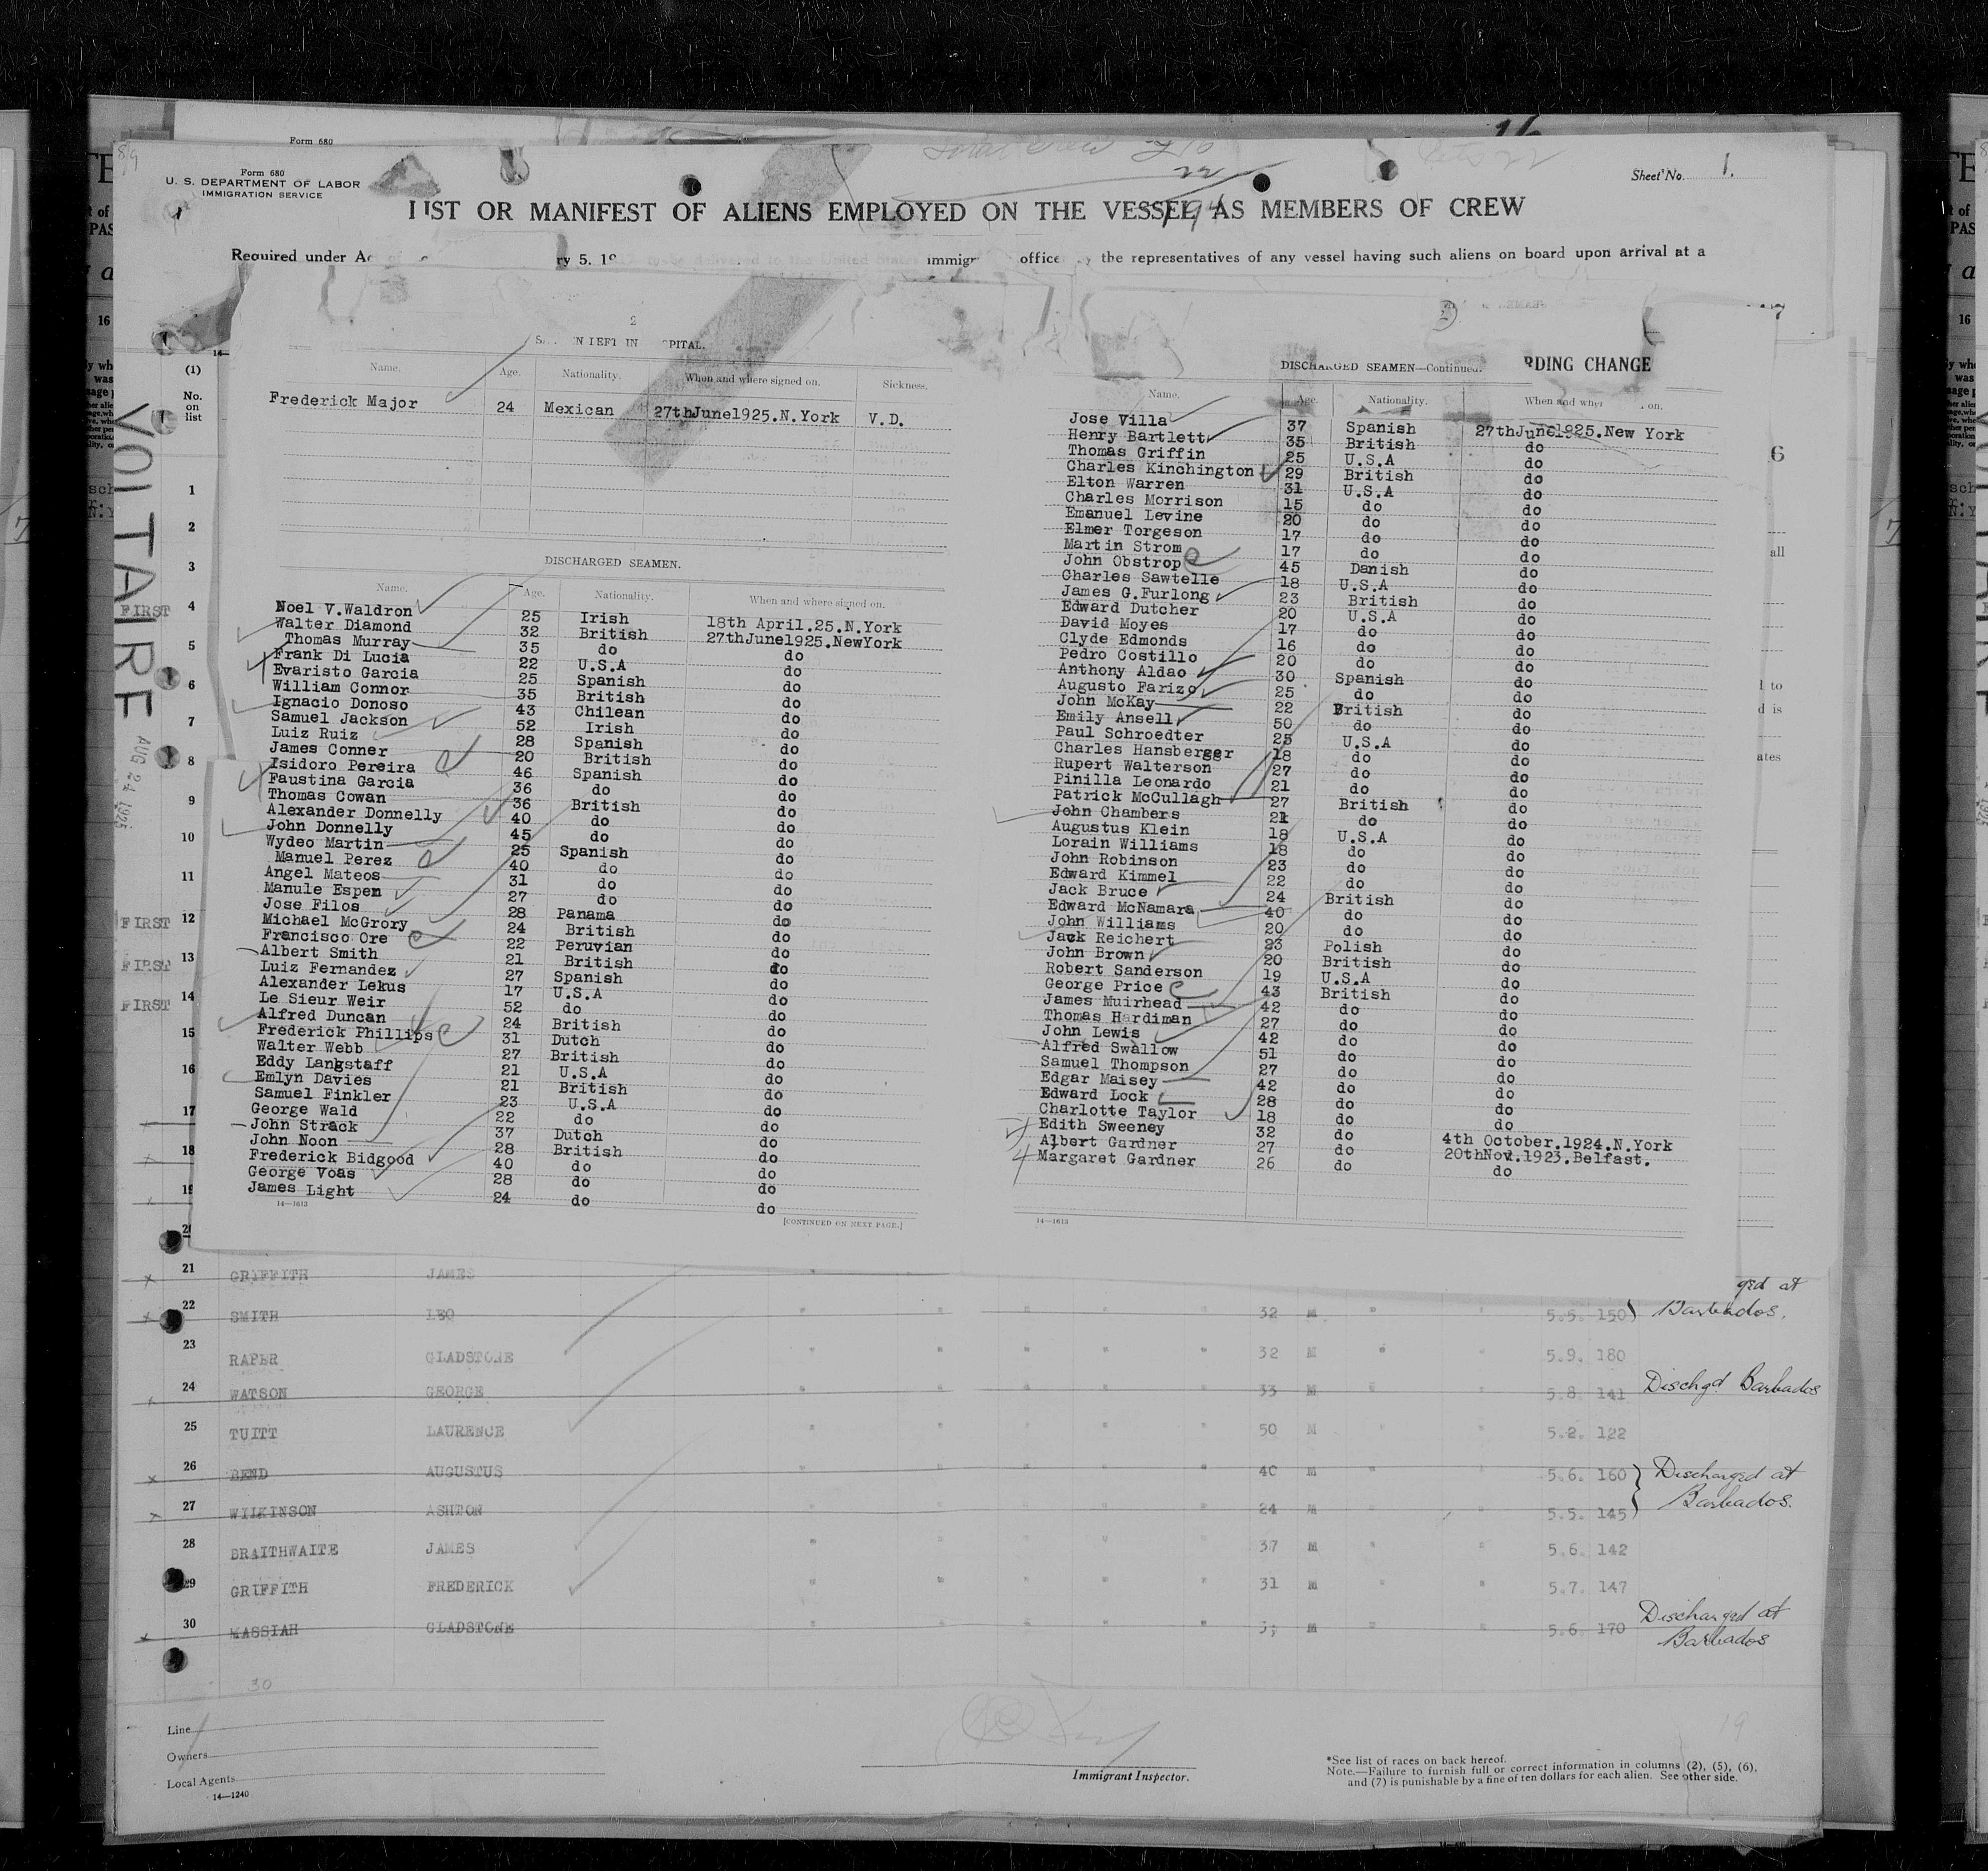 Form 680
Form 680
U. S. DEPARTMENT OF LABOR
IMMIGRATION SERVICE
Sheet No. 1.
LIST OR MANIFEST OF ALIENS EMPLOYED ON THE VESSEL AS MEMBERS OF CREW
Required under Ac ry 5. 19 immigr office the representatives of any vessel having such aliens on board upon arrival at a
VOLTAIRE
AUG 24 1925
(1)
No. on list
2
PITAL.
Name. Age. Nationality. When and where signed on. Sickness.
Frederick Major 24 Mexican 27thJune1925.N.York V.D.
DISCHARGED SEAMEN.
Name. Age. Nationality. When and where signed on.
Noel V.Waldron 25 Irish 18th April.25.N.York
Walter Diamond 32 British 27thJune1925.NewYork
Thomas Murray 35 do do
Frank Di Lucia 22 U.S.A do
Evaristo Garcia 25 Spanish do
William Connor 35 British do
Ignacio Donoso 43 Chilean do
Samuel Jackson 52 Irish do
Luiz Ruiz 28 Spanish do
James Conner 20 British do
Isidoro Pereira 46 Spanish do
Faustina Garcia 36 do do
Thomas Cowan 36 British do
Alexander Donnelly 40 do do
John Donnelly 45 do do
Wydeo Martin 25 Spanish do
Manuel Perez 40 do do
Angel Mateos 31 do do
Manule Espen 27 do do
Jose Filos 28 Panama do
Michael McGrory 24 British do
Francisco Ore 22 Peruvian do
Albert Smith 21 British do
Luiz Fernandez 27 Spanish do
Alexander Lekus 17 U.S.A do
Le Sieur Weir 52 do do
Alfred Duncan 24 British do
Frederick Phillips 31 Dutch do
Walter Webb 27 British do
Eddy Langstaff 21 U.S.A do
Emlyn Davies 21 British do
Samuel Finkler 23 U.S.A do
George Wald 22 do do
John Strack 37 Dutch do
John Noon 28 British do
Frederick Bidgood 40 do do
George Voas 28 do do
James Light 24 do do
14—1613
[CONTINUED ON NEXT PAGE.]
RDING CHANGE
DISCHARGED SEAMEN—Continued.
Name. Age. Nationality. When and wher on.
Jose Villa 37 Spanish 27thJune1925.New York
Henry Bartlett 35 British do
Thomas Griffin 25 U.S.A do
Charles Kinchington 29 British do
Elton Warren 31 U.S.A do
Charles Morrison 15 do do
Emanuel Levine 20 do do
Elmer Torgeson 17 do do
Martin Strom 17 do do
John Obstrop 45 Danish do
Charles Sawtelle 18 U.S.A do
James G.Furlong 23 British do
Edward Dutcher 20 U.S.A do
David Moyes 17 do do
Clyde Edmonds 16 do do
Pedro Costillo 20 do do
Anthony Aldao 30 Spanish do
Augusto Farizo 25 do do
John McKay 22 British do
Emily Ansell 50 do do
Paul Schroedter 25 U.S.A do
Charles Hansberger 18 do do
Rupert Walterson 27 do do
Pinilla Leonardo 21 do do
Patrick McCullagh 27 British do
John Chambers 21 do do
Augustus Klein 18 U.S.A do
Lorain Williams 18 do do
John Robinson 23 do do
Edward Kimmel 22 do do
Jack Bruce 24 British do
Edward McNamara 40 do do
John Williams 20 do do
Jack Reichert 23 Polish do
John Brown 20 British do
Robert Sanderson 19 U.S.A do
George Price 43 British do
James Muirhead 42 do do
Thomas Hardiman 27 do do
John Lewis 42 do do
Alfred Swallow 51 do do
Samuel Thompson 27 do do
Edgar Maisey 42 do do
Edward Lock 28 do do
Charlotte Taylor 18 do do
Edith Sweeney 32 do 4th October.1924.N.York
Albert Gardner 27 do 20thNov.1923.Belfast.
Margaret Gardner 26 do do
14—1613
1
2
3
FIRST 4
5
6
7
8
9
10
11
FIRST 12
FIRST 13
FIRST 14
15
16
17
18
21 GRIFFITH JAMES ged at
22 SMITH LEO 32 M 5.5. 150 Barbados.
23 RAPER GLADSTONE 32 M 5.9. 180
24 WATSON GEORGE 33 M 5.8. 141 Dischgd Barbados
25 TUITT LAURENCE 50 M 5.2. 122
26 BEND AUGUSTUS 40 M 5.6. 160 Discharged at
27 WILKINSON ASHTON 24 M 5.5. 145 Barbados.
28 BRAITHWAITE JAMES 37 M 5.6. 142
29 GRIFFITH FREDERICK 31 M 5.7. 147
30 MASSIAH GLADSTONE M 5.6. 170 Discharged at Barbados
30
19
Line
Owners
Local Agents
14—1240
Immigrant Inspector.
*See list of races on back hereof.
Note.—Failure to furnish full or correct information in columns (2), (5), (6),
and (7) is punishable by a fine of ten dollars for each alien. See other side.